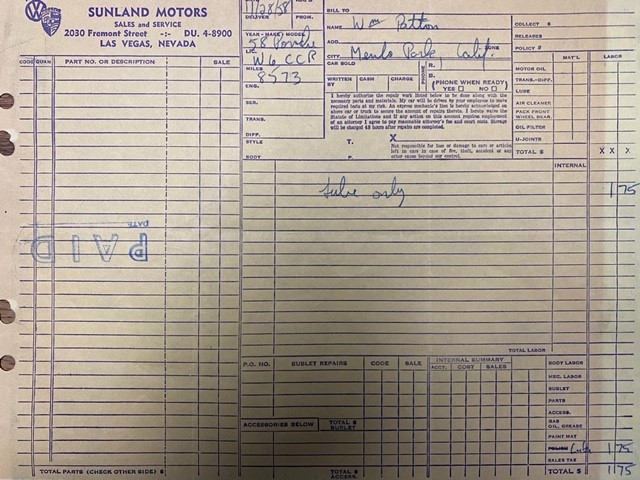 SUNLAND MOTORS
SALES and SERVICE
2030 Fremont Street -:- DU. 4-8900
LAS VEGAS, NEVADA
CODE QUAN. PART NO. OR DESCRIPTION SALE
PAID
DATE
TOTAL PARTS (CHECK OTHER SIDE) $
DELIVER PROM.
YEAR - MAKE - MODEL
58 Porsche
LIC.
MILES 8573
ENG.
SER.
TRANS.
DIFF.
STYLE T.
BODY P.
BILL TO
NAME Wm Patton
ADD.
CITY Menlo Park Calif. ZONE
CAR SOLD
PHONE R. B.
WRITTEN BY CASH CHARGE
(PHONE WHEN READY)
YES NO
I hereby authorize the repair work listed below to be done along with the
necessary parts and materials. My car will be driven by your employee to make
required tests at my risk. An express mechanic's lien is hereby acknowledged on
above car or truck to secure the amount of repairs thereto. I hereby waive the
Statute of Limitations and if any action on this account requires employment
of an attorney I agree to pay reasonable attorney's fee and court costs. Storage
will be charged 48 hours after repairs are completed.
X
Not responsible for loss or damage to cars or articles
left in cars in case of fire, theft, accident or any
other cause beyond my control.
COLLECT $
RELEASED
POLICY #
MAT'L LABOR
MOTOR OIL
TRANS.-DIFF.
LUBE
AIR CLEANER
PACK FRONT
WHEEL BEAR.
OIL FILTER
U-JOINTS
TOTAL $ X X X
INTERNAL
Lube only 1 75
TOTAL LABOR
P.O. NO. SUBLET REPAIRS CODE SALE
INTERNAL SUMMARY
ACCT. COST SALES
ACCESSORIES BELOW TOTAL $
SUBLET
TOTAL $
ACCESS.
BODY LABOR
MEC. LABOR
SUBLET
PARTS
ACCESS.
GAS
OIL, GREASE
PAINT MAT
POLISH Lube 1 75
SALES TAX
TOTAL $ 1 75